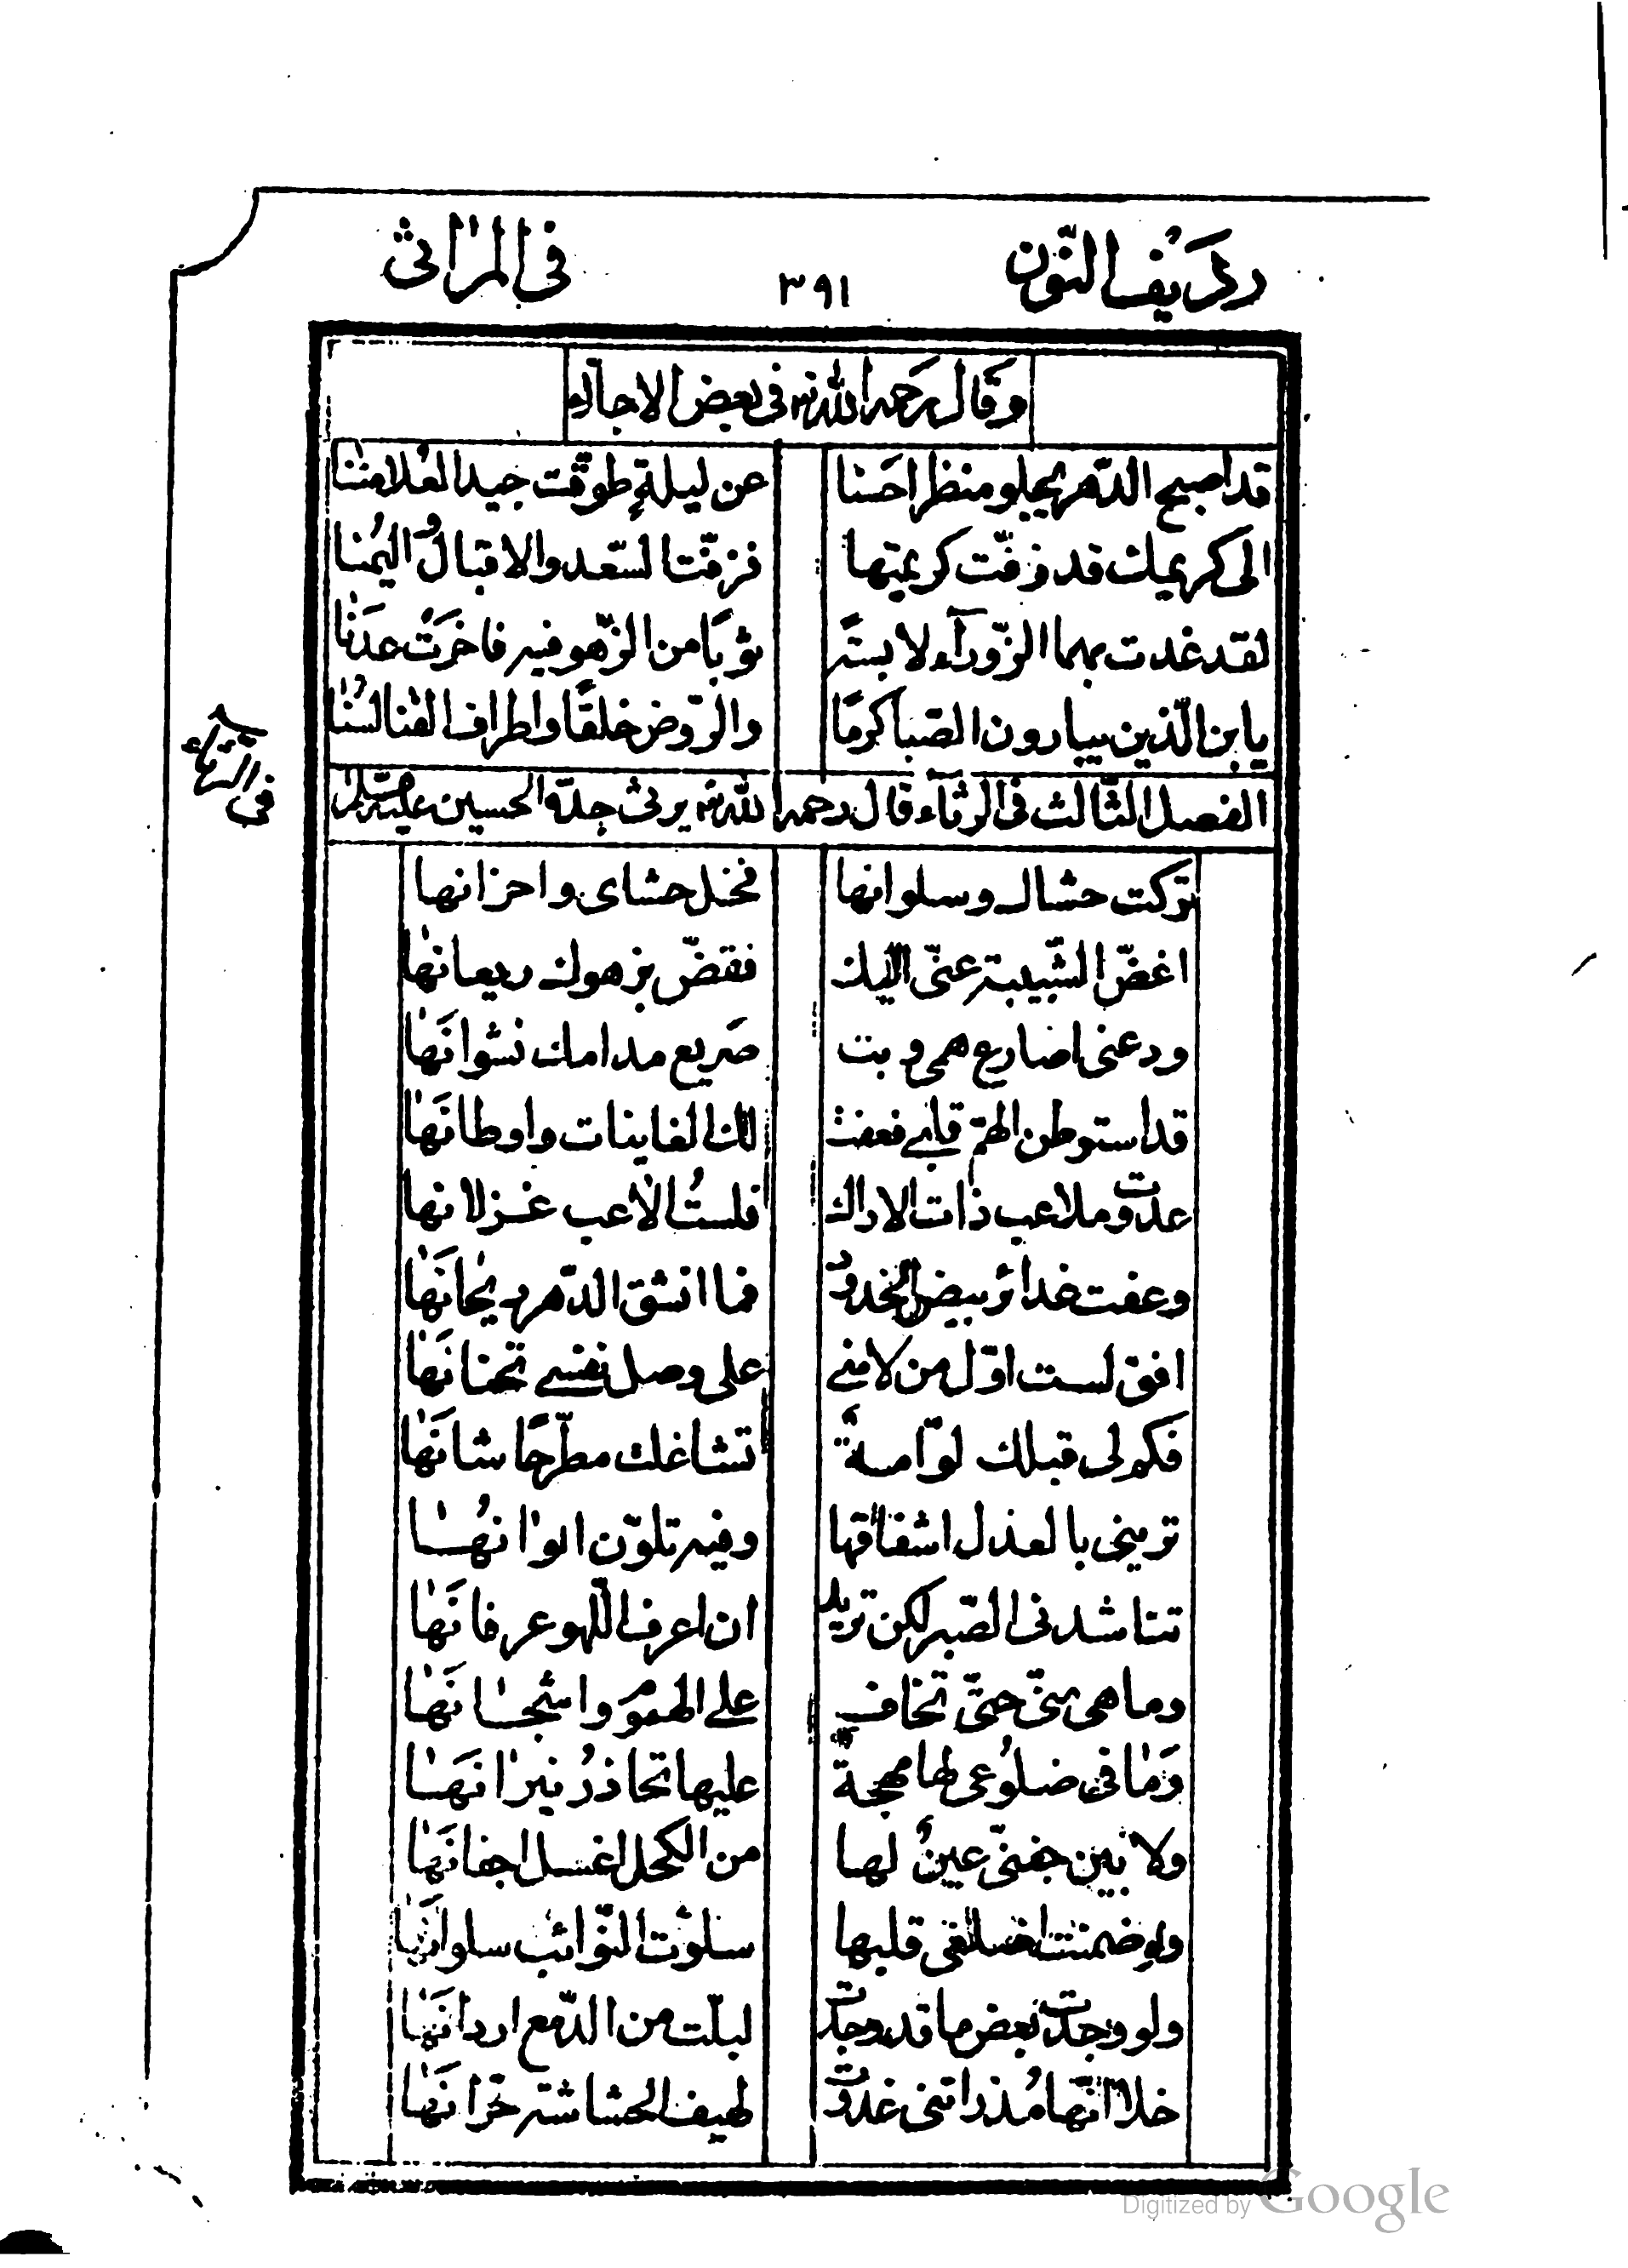 رديف النون ٣٩١ في المراثي
وقال رحمه الله في بعض
قد اصبح الدهر يجلو منظرا حسنا عن ليلة طوقت جيد العلا مننا
الى كريمك قد زفت كريمتها فزفت السعد والاقبال واليمنا
لقد غدت بهما الزورآء لابسة ثوبًا من الزهو فيه فاخرت عدنا
يا بن الذين يبارون الصبا كرمًا والروض خلقًا واطراف القنا لسنا
في الرثاء
الفصل الثالث في الرثآء قال رحمه الله يرثي جده الحسين عليه السلام
تركت حشاك وسلوانها فخل حشاي واحزانها
اغض الشبيبة عني اليك فقض بزهوك ريعانها
ودعني اصارع همي وبت صريع مدامك نشوانها
قد استوطن الهم قلبي فعفت لك الغانيات واوطانها
عدت وملاعب ذات الاراك فلست الاعب غزلانها
وعفت غدائر بيض الخدود فما انشق الدهر ريحانها
افق لست اول من لامني على وصل نفسي تحنانها
فكم لي قبلك لوّامة تشاغلت مطرحًا شانها
تريني بالعذل اشفاقها وفيه تلوّن الوانها
تناشدني الصبر لكن تريد ان اعرف اللهو عرفانها
وما هي مني حتى تخاف علي الهموم واشجانها
وما في ضلوعي لها مهجة عليها تحاذر نيرانها
ولا بين جفني عين لها من الكحل اغسل اجفانها
ولو ضمنت اضلعي قلبها سلوت النوائب سلوانها
ولو وجدت بعض ما قد وجدت لبلت من الدمع اردانها
خلا انها مذ راتني غدوت لهيف الحشاشة حرانها
Digitized by Google